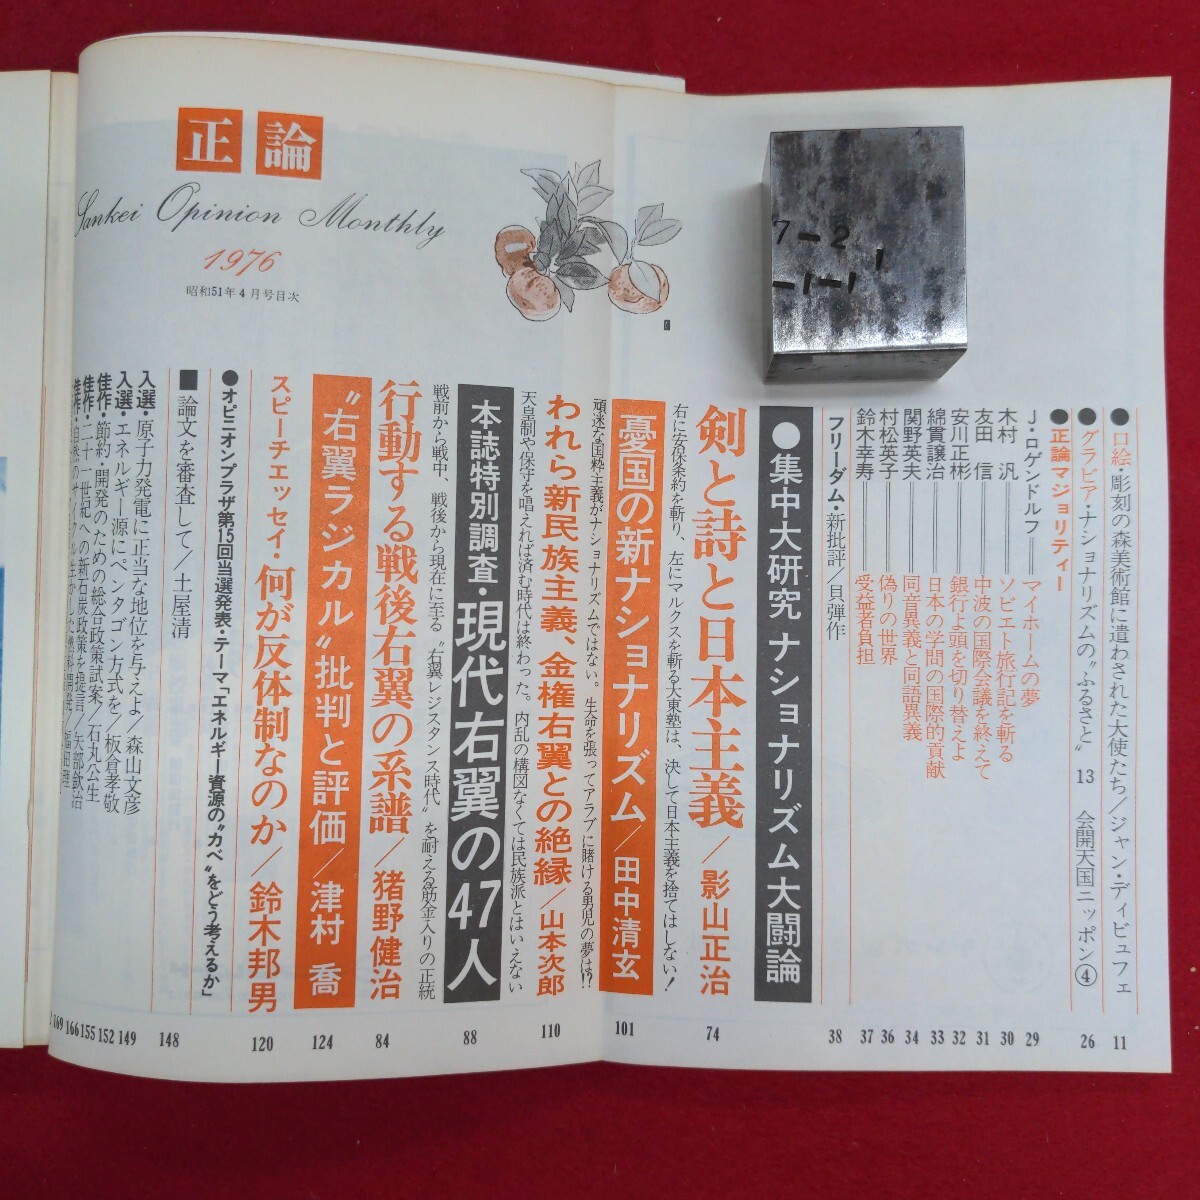 正論
Sankei Opinion Monthly
1976
昭和51年4月号目次
7-2
1
-1-1
●口絵・彫刻の森美術館に遣わされた大使たち/ジャン・ディビュフェ 11
●グラビア・ナショナリズムの〝ふるさと〟13 会開天国ニッポン④ 26
●正論マジョリティー
J・ロゲンドルフ マイホームの夢 29
木村 汎 ソビエト旅行記を斬る 30
友田 信 中波の国際会議を終えて 31
安川正彬 銀行よ頭を切り替えよ 32
綿貫譲治 日本の学問の国際的貢献 33
関野英夫 同音異義と同語異義 34
村松英子 偽りの世界 36
鈴木幸寿 受益者負担 37
フリーダム・新批評/貝弾作 38
●集中大研究 ナショナリズム大闘論
剣と詩と日本主義/影山正治 74
右に安保条約を斬り、左にマルクスを斬る大東塾は、決して日本主義を捨てはしない!
憂国の新ナショナリズム/田中清玄 101
頑迷な国粋主義がナショナリズムではない。生命を張ってアラブに賭ける男児の夢は!?
われら新民族主義、金権右翼との絶縁/山本次郎 110
天皇制や保守を唱えれば済む時代は終わった。内乱の構図なくては民族派とはいえない
本誌特別調査・現代右翼の47人 88
戦前から戦中、戦後から現在に至る〝右翼レジスタンス時代〟を耐える筋金入りの正統
行動する戦後右翼の系譜/猪野健治 84
〝右翼ラジカル〟批判と評価/津村 喬 124
スピーチエッセイ・何が反体制なのか/鈴木邦男 120
●オピニオンプラザ第15回当選発表・テーマ「エネルギー資源の〝カベ〟をどう考えるか」
■論文を審査して/土屋清 148
入選・原子力発電に正当な地位を与えよ/森山文彦 149
入選・エネルギー源にペンタゴン方式を/板倉孝敬 152
佳作・節約・開発のための総合政策試案/石丸公生 155
佳作・二十一世紀への新石炭政策を提言/矢部飲治 166
169